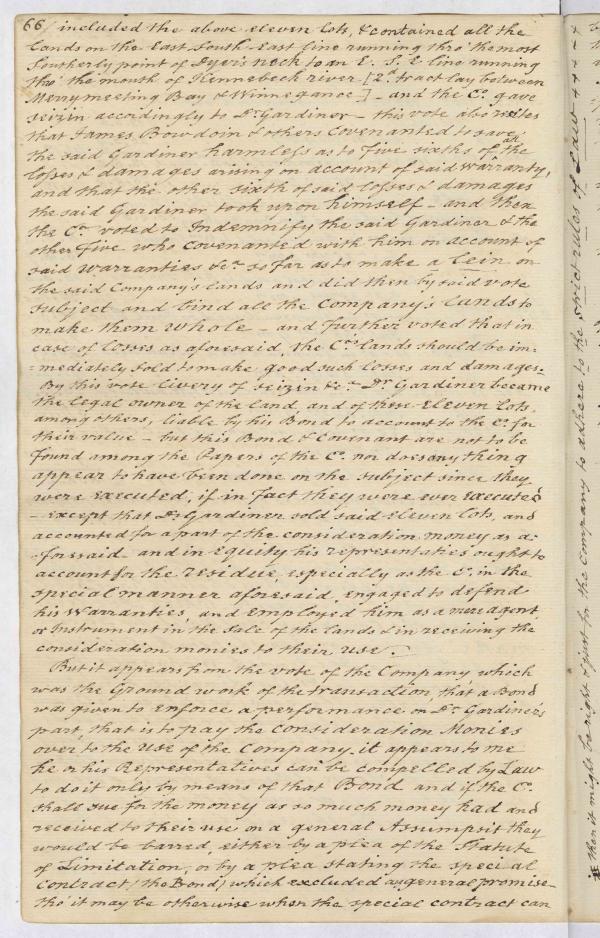 66/ included the above eleven lots, & contained all the
lands on the East South-East line running thro' the most
Southerly point of Dyer's neck to an E. S. E. line running
thro' the mouth of Kennebeck river [2d. tract lay between
Merrymeeting Bay & Winnegance] - and the Co. gave
seizin accordingly to Dr. Gardiner - this vote also recites
that James Bowdoin & others covenanted to save
the said Gardiner harmless as to five sixths of all the
losses & damages arising on account of said warranty,
and that the other sixth of said losses & damages
the said Gardiner took upon himself - and then
the Co. voted to Indemnify the said Gardiner & the
other five who covenanted with him on account of
said warranties &c. so far as to make a lein on
the said Company's lands and did then by said vote
subject and bind all the Company's lands to
make them whole - and further voted that in
case of losses as aforesaid, the Co.'s lands should be im=
mediately sold to make good such losses and damages.
By this vote livery of seizin &c. Dr. Gardiner became
the legal owner of the land, and of these Eleven lots,
among others, liable by his Bond to account to the Co. for
their value - but this Bond & Covenant are not to be
found among the Papers of the Co. nor does any thing
appear to have been done on the subject since they
were executed, if in fact they were ever executed
- except that Dr. Gardiner sold said Eleven lots, and
accounted for a part of the consideration money as a=
foresaid - and in Equity his representaties ought to
account for the residue, especially as the Co. in the
special manner aforesaid, engaged to defend
his warranties, and employed him as a mere agent
or Instrument in the sale of the lands & in receiving the
consideration monies to their use.
But it appears from the vote of the Company which
was the Ground work of the transaction, that a Bond
was given to enforce a performance on Dr. Gardiner's
part, that is to pay the consideration Monies
over to the use of the Company, it appears to me
he or his Representatives can be compelled by Law
to do it only by means of that Bond and if the Co.
shall sue for the money as so much money had and
received to their use on a general Assumpsit they
would be barred, either by a plea of the Statute
of Limitation, or by a plea stating the special
contract (the Bond) which excluded any general promise -
tho' it may be otherwise when the special contract can
then it might be right & just for the Company to adhere to the strict rules of Law